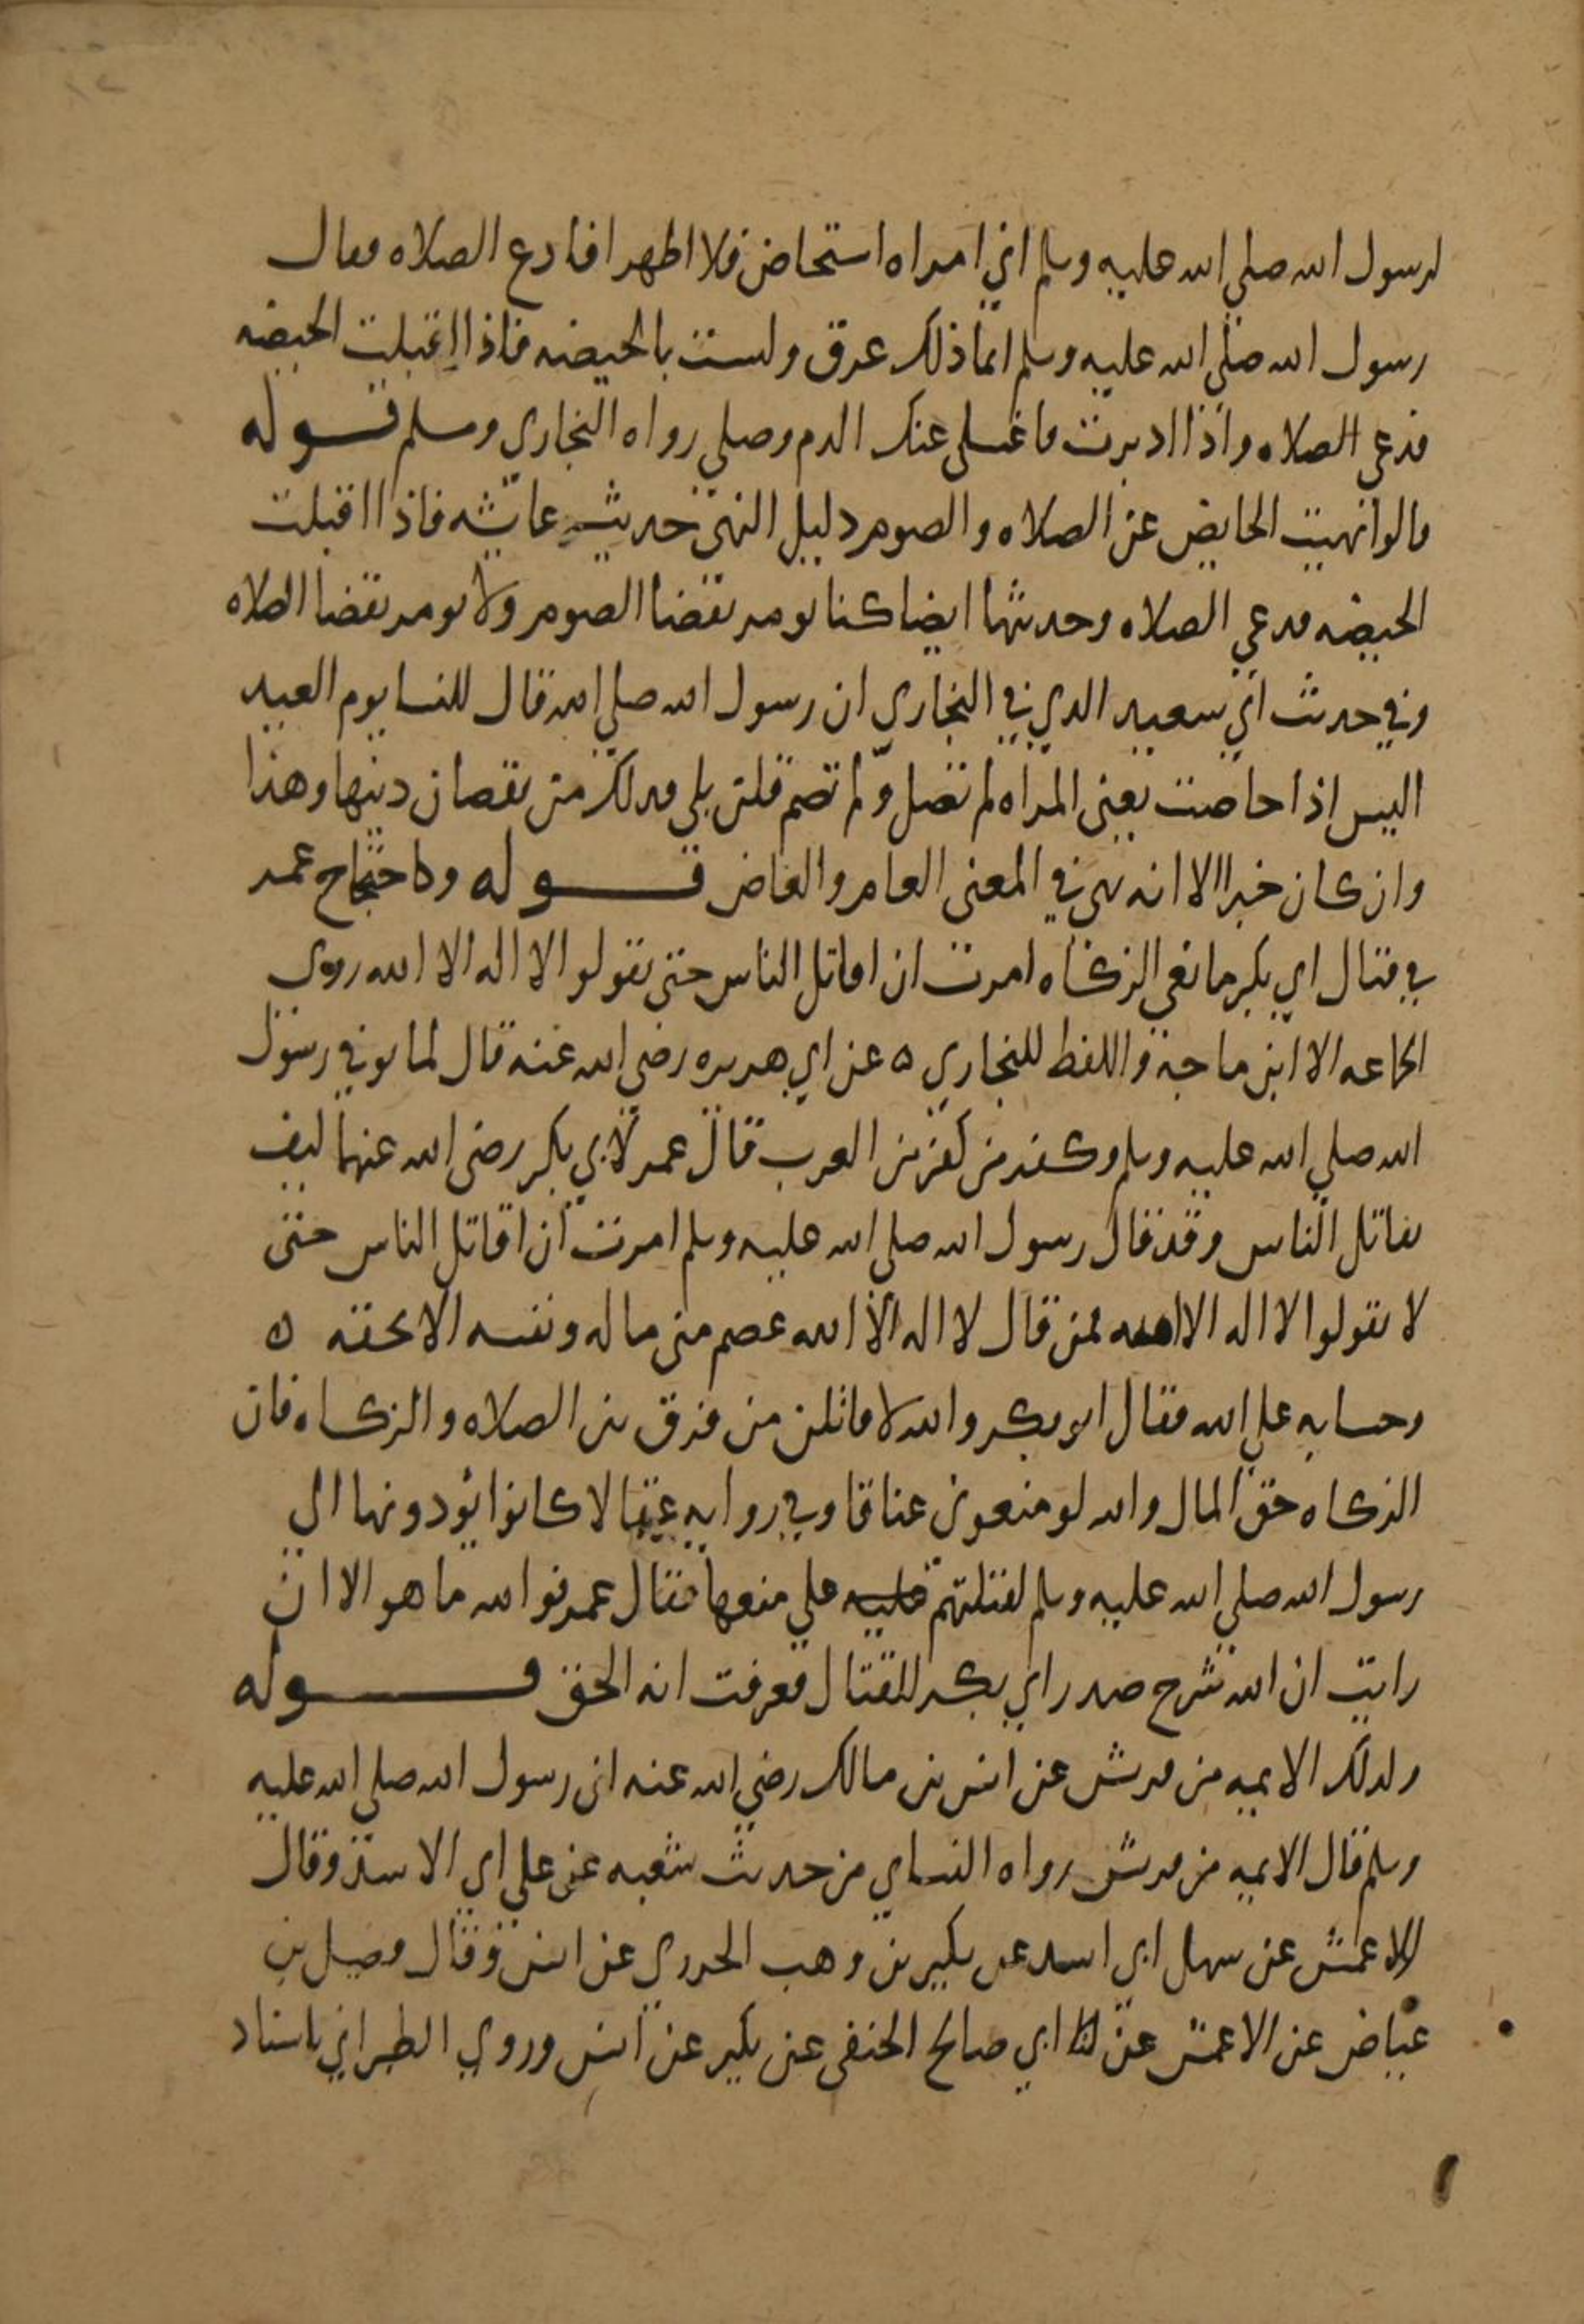 لرسول الله صلي الله عليه وسلم اني امراه استحاض فلا اطهر افادع الصلاه فقال
رسول الله صلى الله عليه وسلم انما ذلك عرق وليست بالحيضه فاذا اقبلت الحيضه
فدعي الصلاه واذا ادبرت فاغسلي عنك الدم وصلي رواه البخاري ومسلم قوله
قالوا نهيت الحايض عن الصلاه والصوم دليل النهى حديث عايشه فاذا اقبلت
الحيضه فدعي الصلاه وحديثها ايضا كنا نومر بقضا الصوم ولا نومر بقضا الصلاه
وفي حديث ابي سعيد الذي في البخاري ان رسول الله صلي الله قال للنسا يوم العيد
اليس اذا حاضت يعني المراه لم تصل ولم تصم قلن بلي فذلك من نقصان دينها وهذا
وان كان خبرا الا انه نهى في المعنى العام والخاص قوله وكاحتجاج عمر
في قتال ابي بكر مانعي الزكاه امرت ان اقاتل الناس حتى يقولوا لا اله الا الله روى
الجماعه الا ابن ماجة واللفظ للبخاري ه عن ابي هريره رضي الله عنه قال لما توفي رسول
الله صلي الله عليه وسلم وكفر من كفر من العرب قال عمر لابي بكر رضى الله عنهما كيف
نقاتل الناس وقد قال رسول الله صلى الله عليه وسلم امرت ان اقاتل الناس حتى
لا يقولوا لا اله الا الله فمن قال لا اله الا الله عصم منى ماله ونفسه الا بحقه ه
وحسابه علي الله فقال ابو بكر والله لاقاتلن من فرق بين الصلاه والزكاه فان
الزكاه حق المال والله لو منعوني عناقا وفي روايه عقالا كانوا يؤدونها الي
رسول الله صلي الله عليه وسلم لقتلتهم عليه علي منعها فقال عمر فوالله ما هو الا ان
رايت ان الله شرح صدر ابي بكر للقتال فعرفت انه الحق قوله
ولذلك الايمه من قريش عن انس بن مالك رضي الله عنه ان رسول الله صلي الله عليه
وسلم قال الايمه من قريش رواه النساي من حديث شعبه عن علي ابي الاسد وقال
الاعمش عن سهل ابي اسد عن بكير بن وهب الجزري عن انس وقال فضيل بن
عياض عن الاعمش عن ابي صالح الحنفى عن بكير عن انس وروي الطبراني باسناد